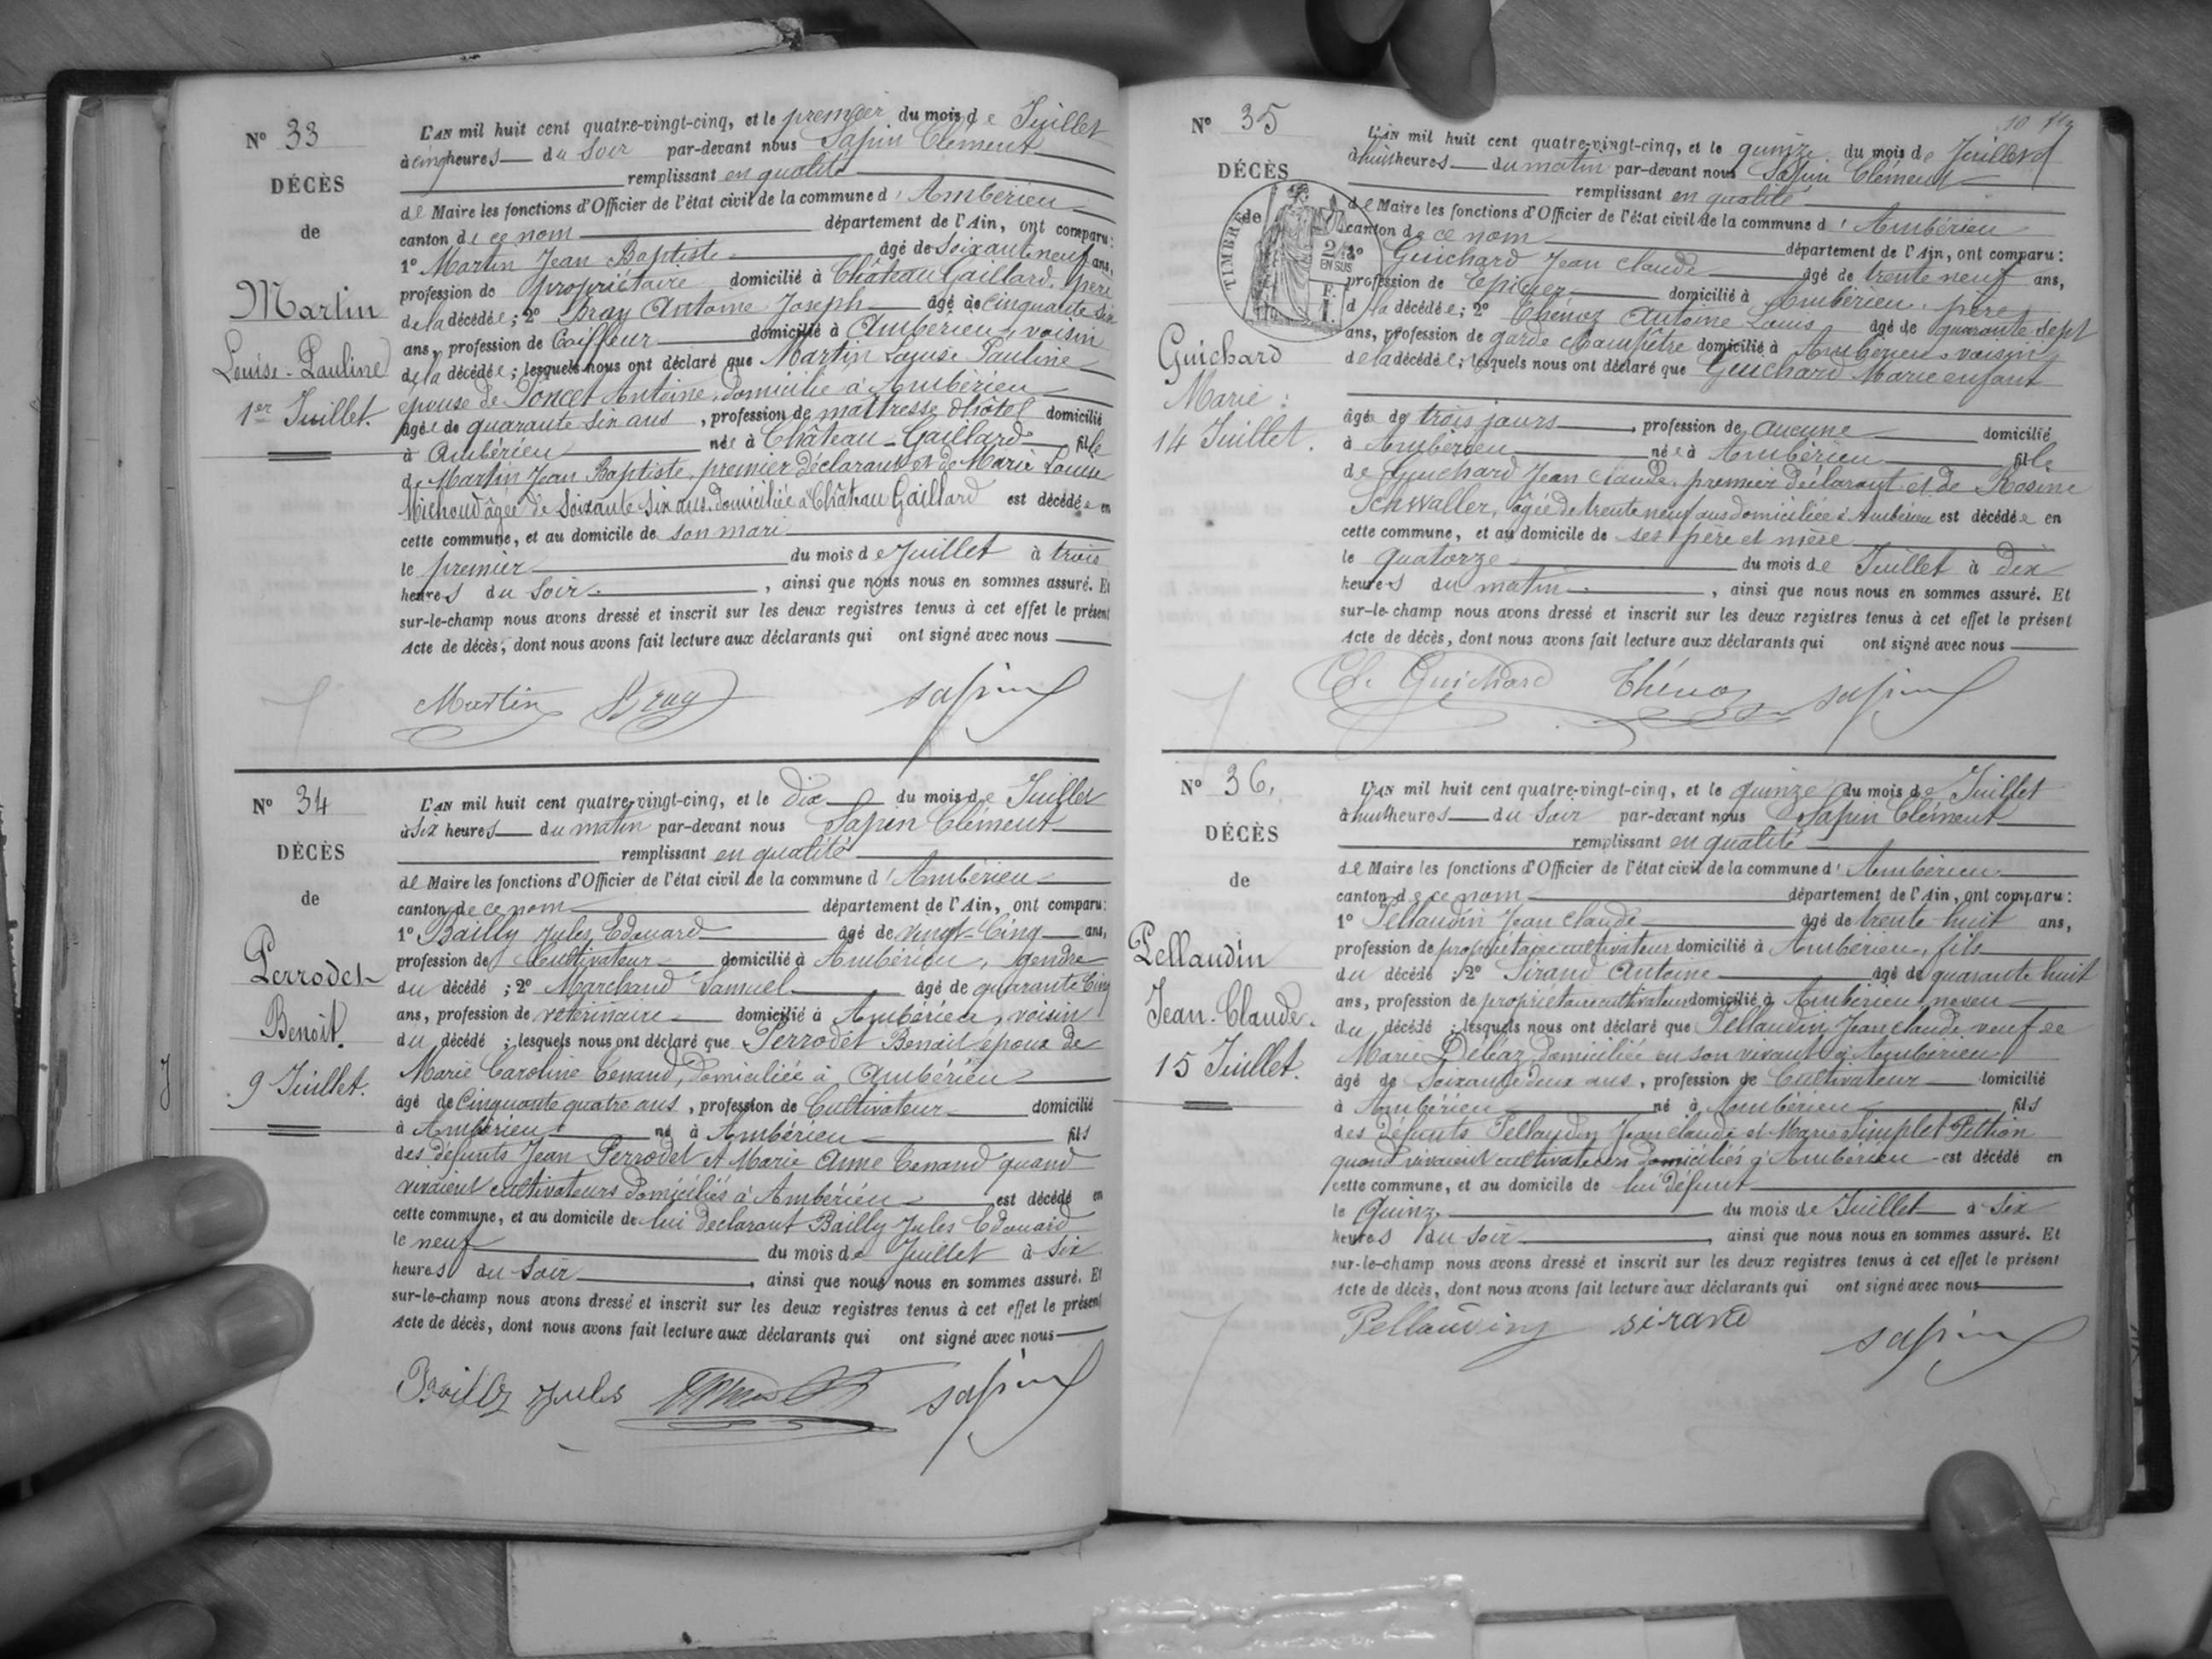 N° 33
DÉCÈS
de
Martin
Louise-Pauline
1er Juillet.
L'AN mil huit cent quatre-vingt-cinq, et le premier du mois de Juillet
à cinq heures du soir par-devant nous Sapin Clément
remplissant en qualité
de Maire les fonctions d'Officier de l'état civil de la commune d'Ambérieu
canton de ce nom département de l'Ain, ont comparu:
1° Martin Jean Baptiste âgé de soixante neuf ans,
profession de propriétaire domicilié à Château Gaillard, père
de la décédée; 2° Antoine Joseph âgé de cinquante six
ans, profession de Coiffeur domicilié à Ambérieu, voisin
de la décédée; lesquels nous ont déclaré que Martin Louise Pauline
épouse de Poncet Antoine, domicilié à Ambérieu
âgée de quarante six ans, profession de maîtresse d'hôtel domicilié
à Ambérieu née à Château-Gaillard fille
de Martin Jean Baptiste, premier déclarant et de Marie Louise
Michoud âgée de soixante six ans, domiciliée à Château Gaillard est décédée en
cette commune, et au domicile de son mari
le premier du mois de Juillet à trois
heures du soir, ainsi que nous nous en sommes assuré. Et
sur-le-champ nous avons dressé et inscrit sur les deux registres tenus à cet effet le présent
Acte de décès, dont nous avons fait lecture aux déclarants qui ont signé avec nous
Martin sapin
N° 34
DÉCÈS
de
Perrodet
Benoit.
9 Juillet.
L'AN mil huit cent quatre-vingt-cinq, et le dix du mois de Juillet
à six heures du matin par-devant nous Sapin Clément
remplissant en qualité
de Maire les fonctions d'Officier de l'état civil de la commune d'Ambérieu
canton de ce nom département de l'Ain, ont comparu:
1° Bailly Jules Edouard âgé de vingt-cinq ans,
profession de Cultivateur domicilié à Ambérieu, gendre
du décédé; 2° Marchand Samuel âgé de quarante cinq
ans, profession de vétérinaire domicilié à Ambérieu, voisin
du décédé; lesquels nous ont déclaré que Perrodet Benoit époux de
Marie Caroline Tenand, domiciliée à Ambérieu
âgé de Cinquante quatre ans, profession de Cultivateur domicilié
à Ambérieu né à Ambérieu fils
des défunts Jean Perrodet et Marie Anne Tenand quand
vivaient cultivateurs domiciliés à Ambérieu est décédé en
cette commune, et au domicile de lui déclarant Bailly Jules Edouard
le neuf du mois de Juillet à six
heures du soir, ainsi que nous nous en sommes assuré. Et
sur-le-champ nous avons dressé et inscrit sur les deux registres tenus à cet effet le présent
Acte de décès, dont nous avons fait lecture aux déclarants qui ont signé avec nous
Bailly Jules sapin
10
N° 35
DÉCÈS
de
TIMBRE
2/10
EN SUS
Guichard
Marie:
14 Juillet.
L'AN mil huit cent quatre-vingt-cinq, et le quinze du mois de Juillet
à huit heures du matin par-devant nous Sapin Clément
remplissant en qualité
de Maire les fonctions d'Officier de l'état civil de la commune d'Ambérieu
canton de ce nom département de l'Ain, ont comparu:
1° Guichard Jean Claude âgé de trente neuf ans,
profession de Epicier domicilié à Ambérieu, père
d la décédée; 2° Thénoz Antoine Louis âgé de quarante sept
ans, profession de garde champêtre domicilié à Ambérieu, voisin
de la décédée; lesquels nous ont déclaré que Guichard Marie enfant
âgée de trois jours, profession de aucune domicilié
à Ambérieu née à Ambérieu fille
de Guichard Jean Claude, premier déclarant et de Rosine
Schwaller, âgée de trente neuf ans domiciliée à Ambérieu est décédée en
cette commune, et au domicile de ses père et mère
le quatorze du mois de Juillet à dix
heures du matin, ainsi que nous nous en sommes assuré. Et
sur-le-champ nous avons dressé et inscrit sur les deux registres tenus à cet effet le présent
Acte de décès, dont nous avons fait lecture aux déclarants qui ont signé avec nous
Guichard Thénoz sapin
N° 36.
DÉCÈS
de
Pellaudin
Jean-Claude.
15 Juillet.
L'AN mil huit cent quatre-vingt-cinq, et le quinze du mois de Juillet
à huit heures du soir par-devant nous Sapin Clément
remplissant en qualité
de Maire les fonctions d'Officier de l'état civil de la commune d'Ambérieu
canton de ce nom département de l'Ain, ont comparu:
1° Pellaudin Jean Claude âgé de trente huit ans,
profession de propriétaire cultivateur domicilié à Ambérieu, fils
du décédé; 2° Sirand Antoine âgé de quarante huit
ans, profession de propriétaire cultivateur domicilié à Ambérieu neveu
du décédé; lesquels nous ont déclaré que Pellaudin Jean Claude veuf de
Marie Déléaz, domiciliée en son vivant à Ambérieu
âgé de soixante deux ans, profession de Cultivateur domicilié
à Ambérieu né à Ambérieu fils
des défunts Pellaudin Jean Claude et Marie Simplet Pethon
quand vivaient cultivateurs domiciliés à Ambérieu est décédé en
cette commune, et au domicile de lui défunt
le Quinze du mois de Juillet à six
heures du soir, ainsi que nous nous en sommes assuré. Et
sur-le-champ nous avons dressé et inscrit sur les deux registres tenus à cet effet le présent
Acte de décès, dont nous avons fait lecture aux déclarants qui ont signé avec nous
Pellaudin sirand sapin